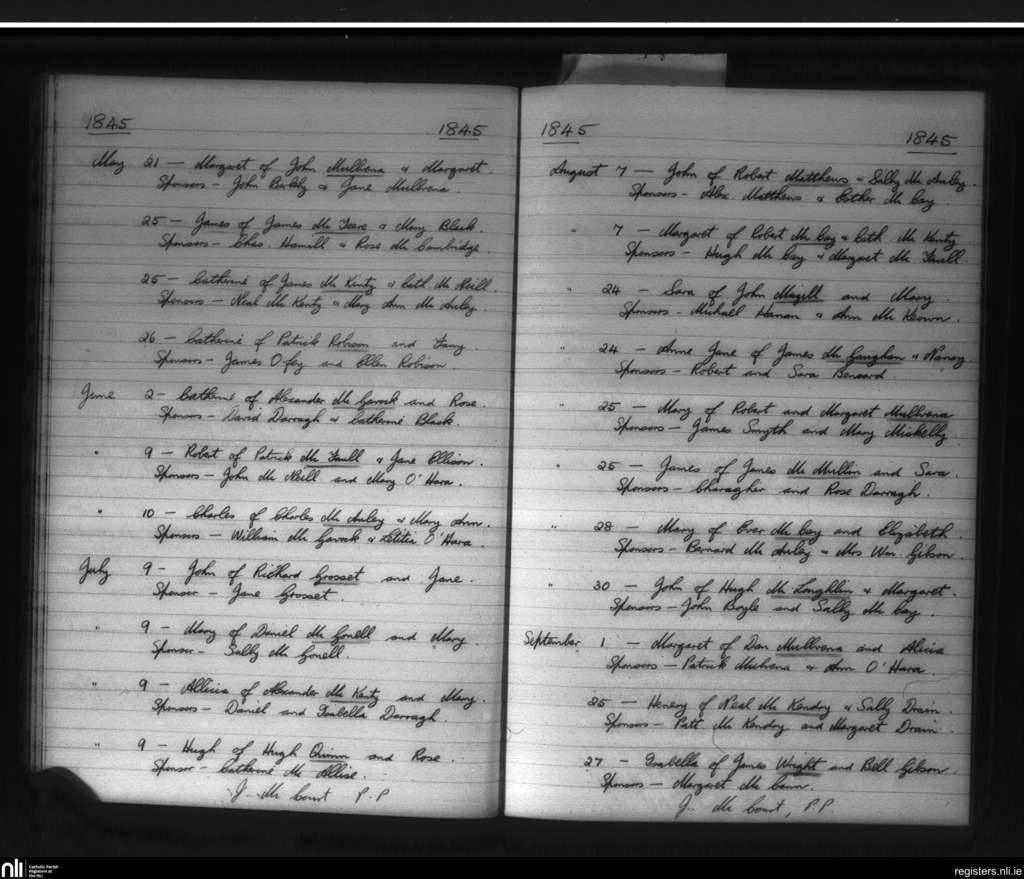 1845 1845
May 21 — Margaret of John Mullvena & Margaret.
Sponsors — John & Jane Mullvena.
25 — James of James & Mary Black.
Sponsors — Chas. Hamill & Rose Mc Cambridge.
25 — Catherine of James Mc Kinty & Cath. Mc Neill.
Sponsors — Neal Mc Kenty & Mary Ann Mc Auley.
26 — Catherine of Patrick Robison and Fanny.
Sponsors — James and Ellen Robison.
June 2 — Catherine of Alexander Mc Gavock and Rose.
Sponsors — David Darragh & Catherine Black.
" 9 — Robert of Patrick Mc Faull & Jane Ellison.
Sponsors — John Mc Neill and Mary O'Hara.
" 10 — Charles of Charles Mc Auley & Mary Ann.
Sponsors — William Mc Gavock & Letitia O'Hara.
July 9 — John of Richard Grosset and Jane.
Sponsor — Jane Grosset.
" 9 — Mary of Daniel Mc Gonell and Mary.
Sponsor — Sally Mc Gonell.
" 9 — Allicia of Alexander Mc Kenty and Mary.
Sponsors — Daniel and Isabella Darragh.
" 9 — Hugh of Hugh Quinn and Rose.
Sponsor — Catherine Mc Allise.
J. Mc Court P.P
1845 1845
August 7 — John of Robert Matthews & Sally Mc Auley.
Sponsors — Alex. Matthews & Esther Mc Cay.
" 7 — Margaret of Robert Mc Cay & Cath. Mc Kenty
Sponsors — Hugh Mc Cay & Margaret Mc Faull.
" 24 — Sara of John Magill and Mary.
Sponsors — Michall Hanan & Ann Mc Keown.
" 24 — Anne Jane of James Mc Gaughan & Nancy.
Sponsors — Robert and Sara Benard.
" 25 — Mary of Robert and Margaret Mullvena
Sponsors — James Smyth and Mary Mickelly.
" 25 — James of James Mc Mullin and Sara.
Sponsors — Charagher and Rose Darragh.
" 28 — Mary of Ever Mc Cay and Elizabeth.
Sponsors — Bernard Mc Auley & Mrs Wm. Gibson
" 30 — John of Hugh Mc Loughlin & Margaret.
Sponsors — John Boyle and Sally Mc Cay.
September 1 — Margaret of Dan Mullvena and Alicia
Sponsors — Patrick & Ann O'Hara.
25 — Henery of Neal Mc Kendry & Sally Drain.
Sponsors — Patt. Mc Kendry and Margaret Drain
27 — Isabella of James Wright and Bell Gibson.
Sponsors — Margaret Mc Cann.
J. Mc Court, P.P.
nli Catholic Parish
Registers at
the NLI
registers.nli.ie